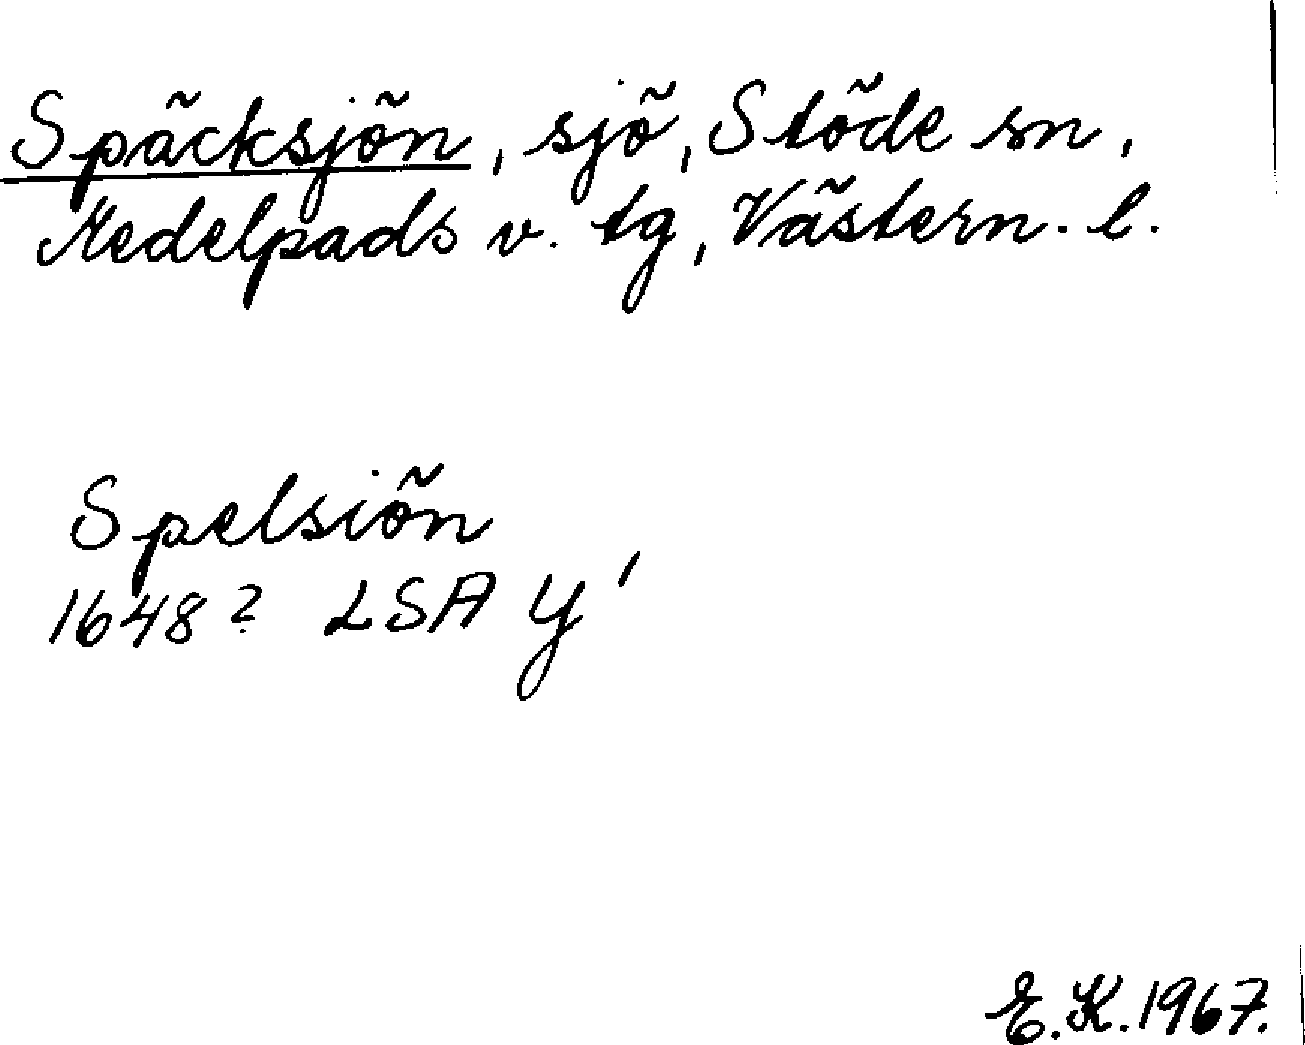 Späcksjön, sjö, Stöde sn,
Medelpads v. tg, Västern. l.
Spelsiön
1648? LSA Y'
E.K. 1967.